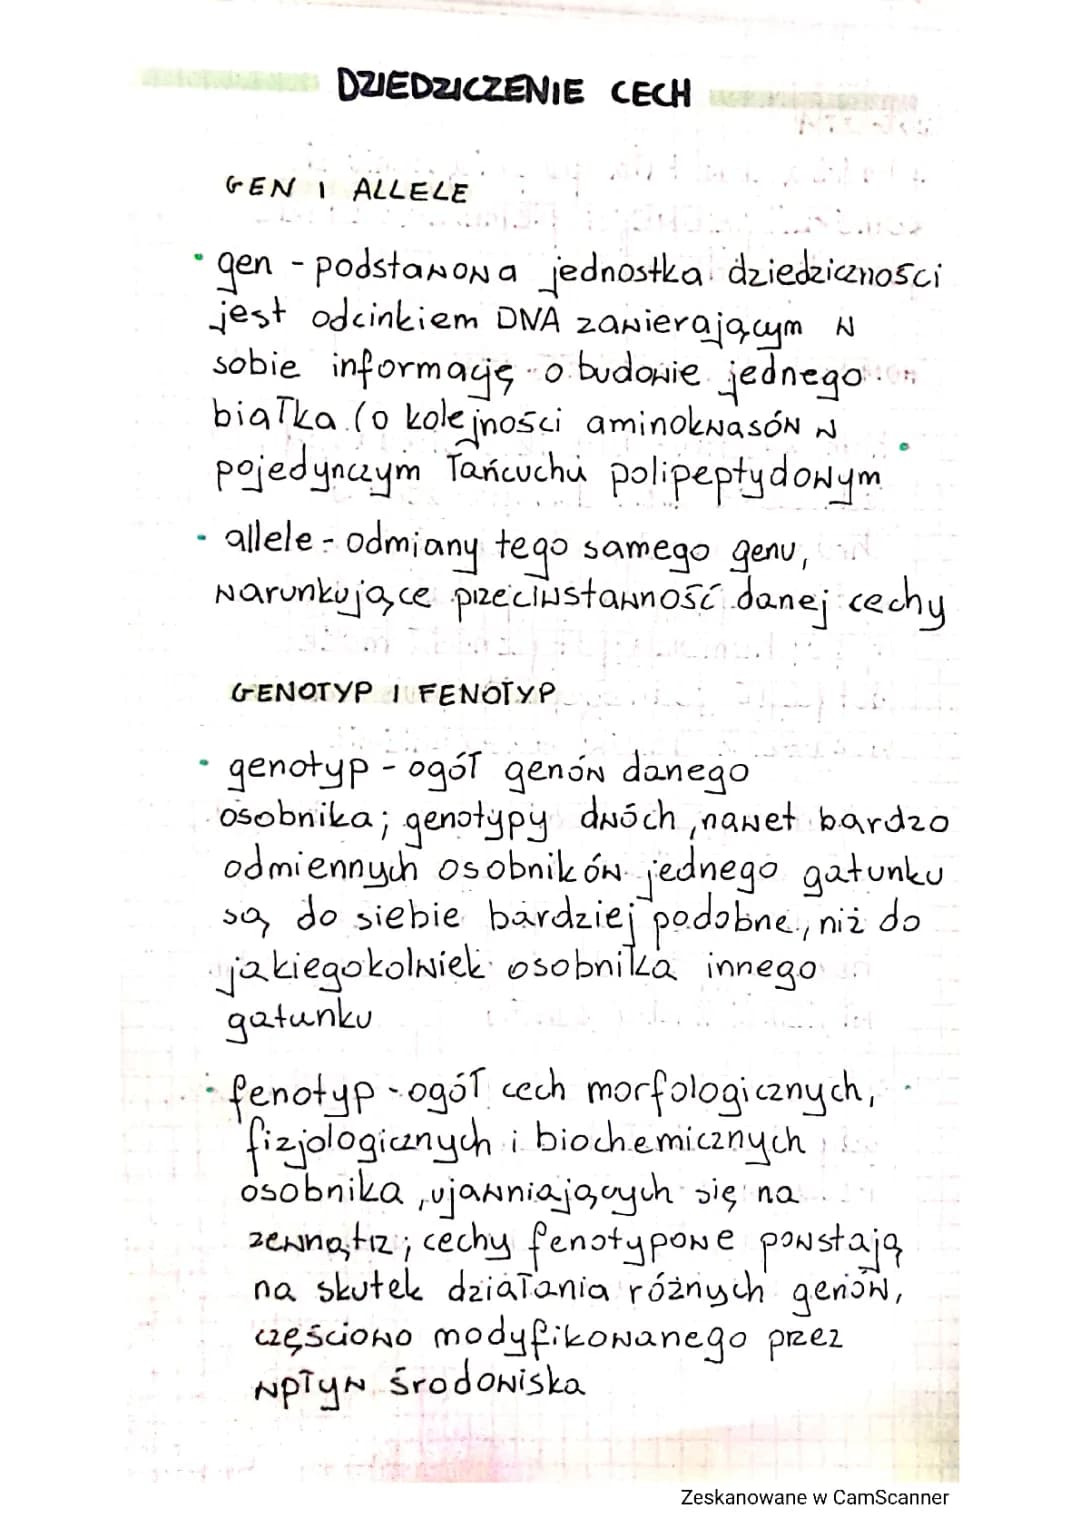 DZIEDZICZENIE CECH
GEN I ALLELE
• gen - podstawowa jednostka dziedziczności
jest odcinkiem DNA zawierającym w
sobie informację o budowie jednego
białka (o kolejności aminokwasów w
pojedynczym łańcuchu polipeptydowym
• allele - odmiany tego samego genu,
warunkujące przeciwstawność danej cechy
GENOTYP I FENOTYP
• genotyp - ogół genów danego
osobnika; genotypy dwóch, nawet bardzo
odmiennych osobników jednego gatunku
są do siebie bardziej podobne, niż do
jakiegokolwiek osobnika innego
gatunku
• fenotyp - ogół cech morfologicznych,
fizjologicznych i biochemicznych
osobnika, ujawniających się na
zewnątrz; cechy fenotypowe powstają
na skutek działania różnych genów,
częściowo modyfikowanego przez
wpływ środowiska
Zeskanowane w CamScanner